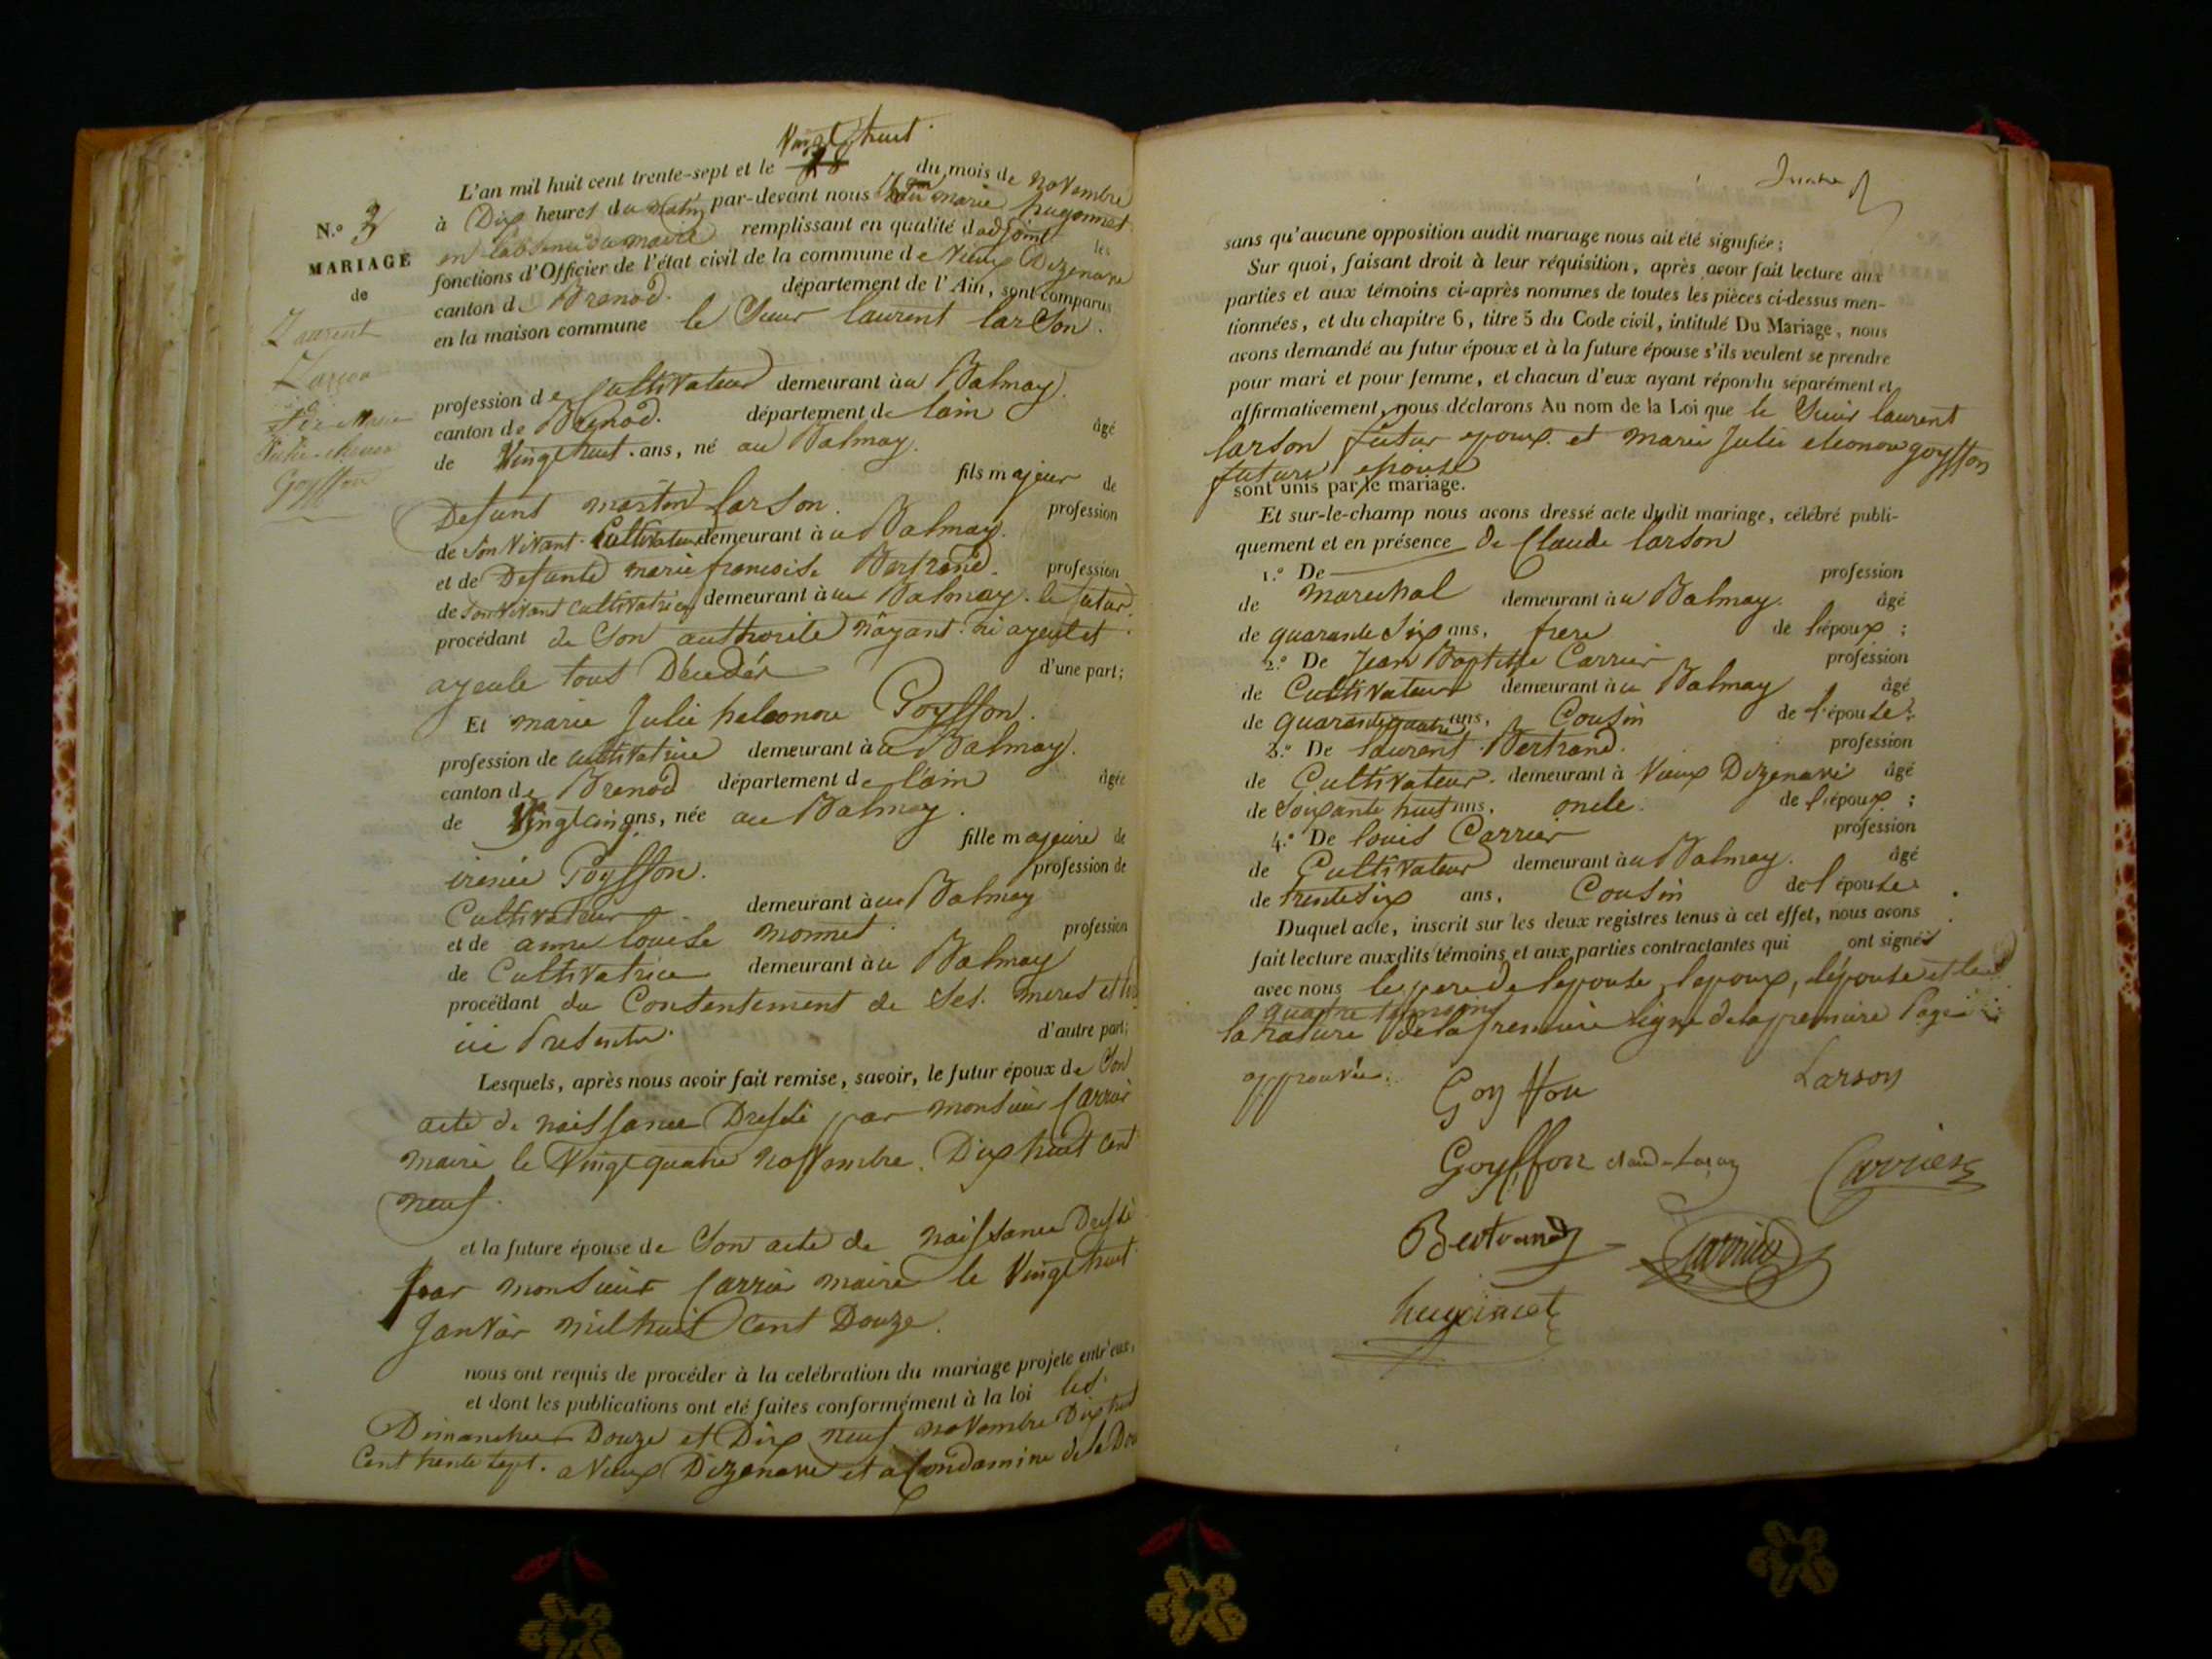 Vingt huit
L'an mil huit cent trente-sept et le 28 du mois de novembre
à Dix heures du matin par-devant nous marie hugonnet
en l'absence du maire remplissant en qualité d'adjoint les
fonctions d'Officier de l'état civil de la commune de Vieux Dizenave
canton de Brenod. département de l'Ain, sont comparus
en la maison commune le Sieur laurent larson.
N.° 3
MARIAGE
de
Laurent
Larson
&
Marie
Julie
Goyffon
profession de Cultivateur demeurant à au Balmay.
canton de Brenod. département de lain
âgé
de Vingt huit. ans, né au Balmay.
fils majeur de
Defunt martin larson.
profession
de son vivant Cultivateur demeurant à au Balmay.
et de Defunte marie francoise Bertrand. profession
de son vivant cultivatrice demeurant à au Balmay. le futur
procédant de son authorité n'ayant ni ayeul et
ayeule tous Décédés
d'une part;
Et marie Julie heleonore Goyffon.
profession de cultivatrice demeurant à au Balmay.
canton de Brenod département de lain
âgée
de Vingt cinq ans, née au Balmay.
fille majeure de
irenée Goyffon.
profession de
Cultivateur demeurant à au Balmay
et de anne louise monnet.
profession
de Cultivatrice demeurant à au Balmay
procédant du Consentement de ses meres et
ici Presents.
d'autre part;
Lesquels, après nous avoir fait remise, savoir, le futur époux de Son
acte de naissance Dressé par monsieur Carrier
maire le Vingt quatre novembre. Dix huit cent
neuf.
et la future épouse de Son acte de naissance Dressé
par monsieur Carrier maire le Vingt huit
Janvier mil huit cent Douze.
nous ont requis de procéder à la celébration du mariage projeté entr'eux,
et dont les publications ont eté faites conformément à la loi les
Dimanches Douze et Dix neuf novembre Dix huit
Cent trente sept. a Vieux Dizenave et a Condamine de la Doy
sans qu'aucune opposition audit mariage nous ait été signifiée;
Sur quoi, faisant droit à leur réquisition, après avoir fait lecture aux
parties et aux témoins ci-après nommés de toutes les pièces ci-dessus men-
tionnées, et du chapitre 6, titre 5 du Code civil, intitulé Du Mariage, nous
avons demandé au futur époux et à la future épouse s'ils veulent se prendre
pour mari et pour femme, et chacun d'eux ayant répondu séparément et
affirmativement, nous déclarons Au nom de la Loi que le Sieur laurent
larson futur epoux. et marie Julie eleonore goyffon
future epouse
sont unis par le mariage.
Et sur-le-champ nous avons dressé acte dudit mariage, célébré publi-
quement et en présence de Claude larson
1.° De
profession
de marechal demeurant à au Balmay.
âgé
de quarante Six ans, frere de l'époux;
2.° De Jean Baptiste Carrier
profession
de Cultivateur demeurant à au Balmay
âgé
de quarante quatre ans, Cousin de l'épouse;
3.° De laurent Bertrand.
profession
de Cultivateur. demeurant à Vieux Dizenave
âgé
de Soixante huit ans, oncle. de l'époux;
4.° De louis Carrier
profession
de Cultivateur demeurant à au Balmay.
âgé
de trente Six ans, Cousin de l'épouse.
Duquel acte, inscrit sur les deux registres tenus à cet effet, nous avons
fait lecture auxdits témoins et aux parties contractantes qui ont signés
avec nous le pere de lepouse, lepoux, l'épouse et les
quatre temoins
la rature de la premiere ligne de la premiere Page
approuvée.
Goyffon
Larson
Goyffon
Carrier
Bertrand
Carrier